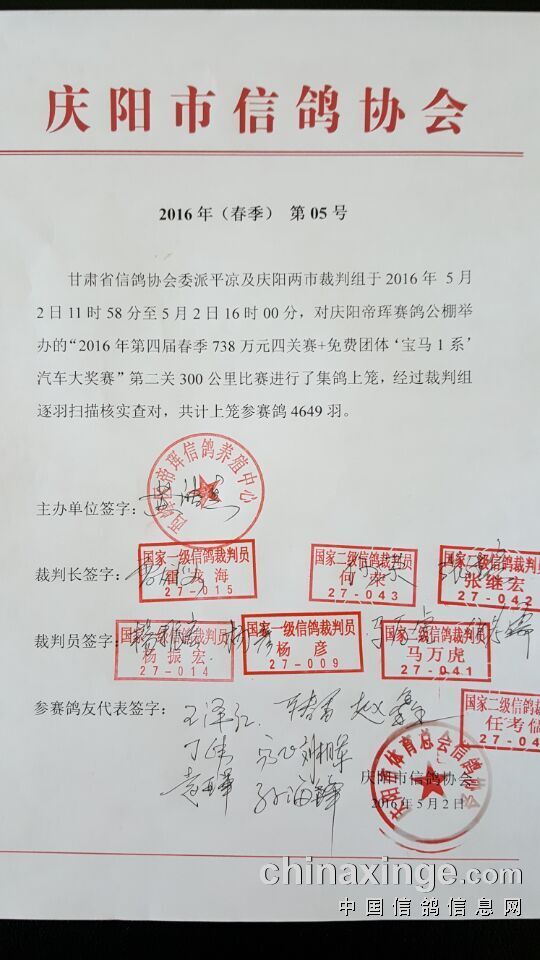 庆阳市信鸽协会
2016 年（春季） 第 05 号
甘肃省信鸽协会委派平凉及庆阳两市裁判组于 2016 年 5 月
2 日 11 时 58 分至 5 月 2 日 16 时 00 分，对庆阳帝珲赛鸽公棚举
办的“2016 年第四届春季 738 万元四关赛+免费团体‘宝马 1 系’
汽车大奖赛”第二关 300 公里比赛进行了集鸽上笼，经过裁判组
逐羽扫描核实查对，共计上笼参赛鸽 4649 羽。
帝珲信鸽养殖中心
主办单位签字：
裁判长签字：
国家一级信鸽裁判员
海
27-015
国家二级信鸽裁判员
何荣
27-043
国家二级信鸽裁判员
张继宏
27-042
裁判员签字：
国家一级信鸽裁判员
杨振宏
27-014
国家一级信鸽裁判员
杨彦
27-009
国家二级信鸽裁判员
马万虎
27-041
国家二级信鸽裁判员
任考儒
27-04
参赛鸽友代表签字：
王泽仁
刘相军
孙海锋
庆阳市体育总会信鸽协会
庆阳市信鸽协会
2016 年 5 月 2 日
chinaxinge.com
中国信鸽信息网